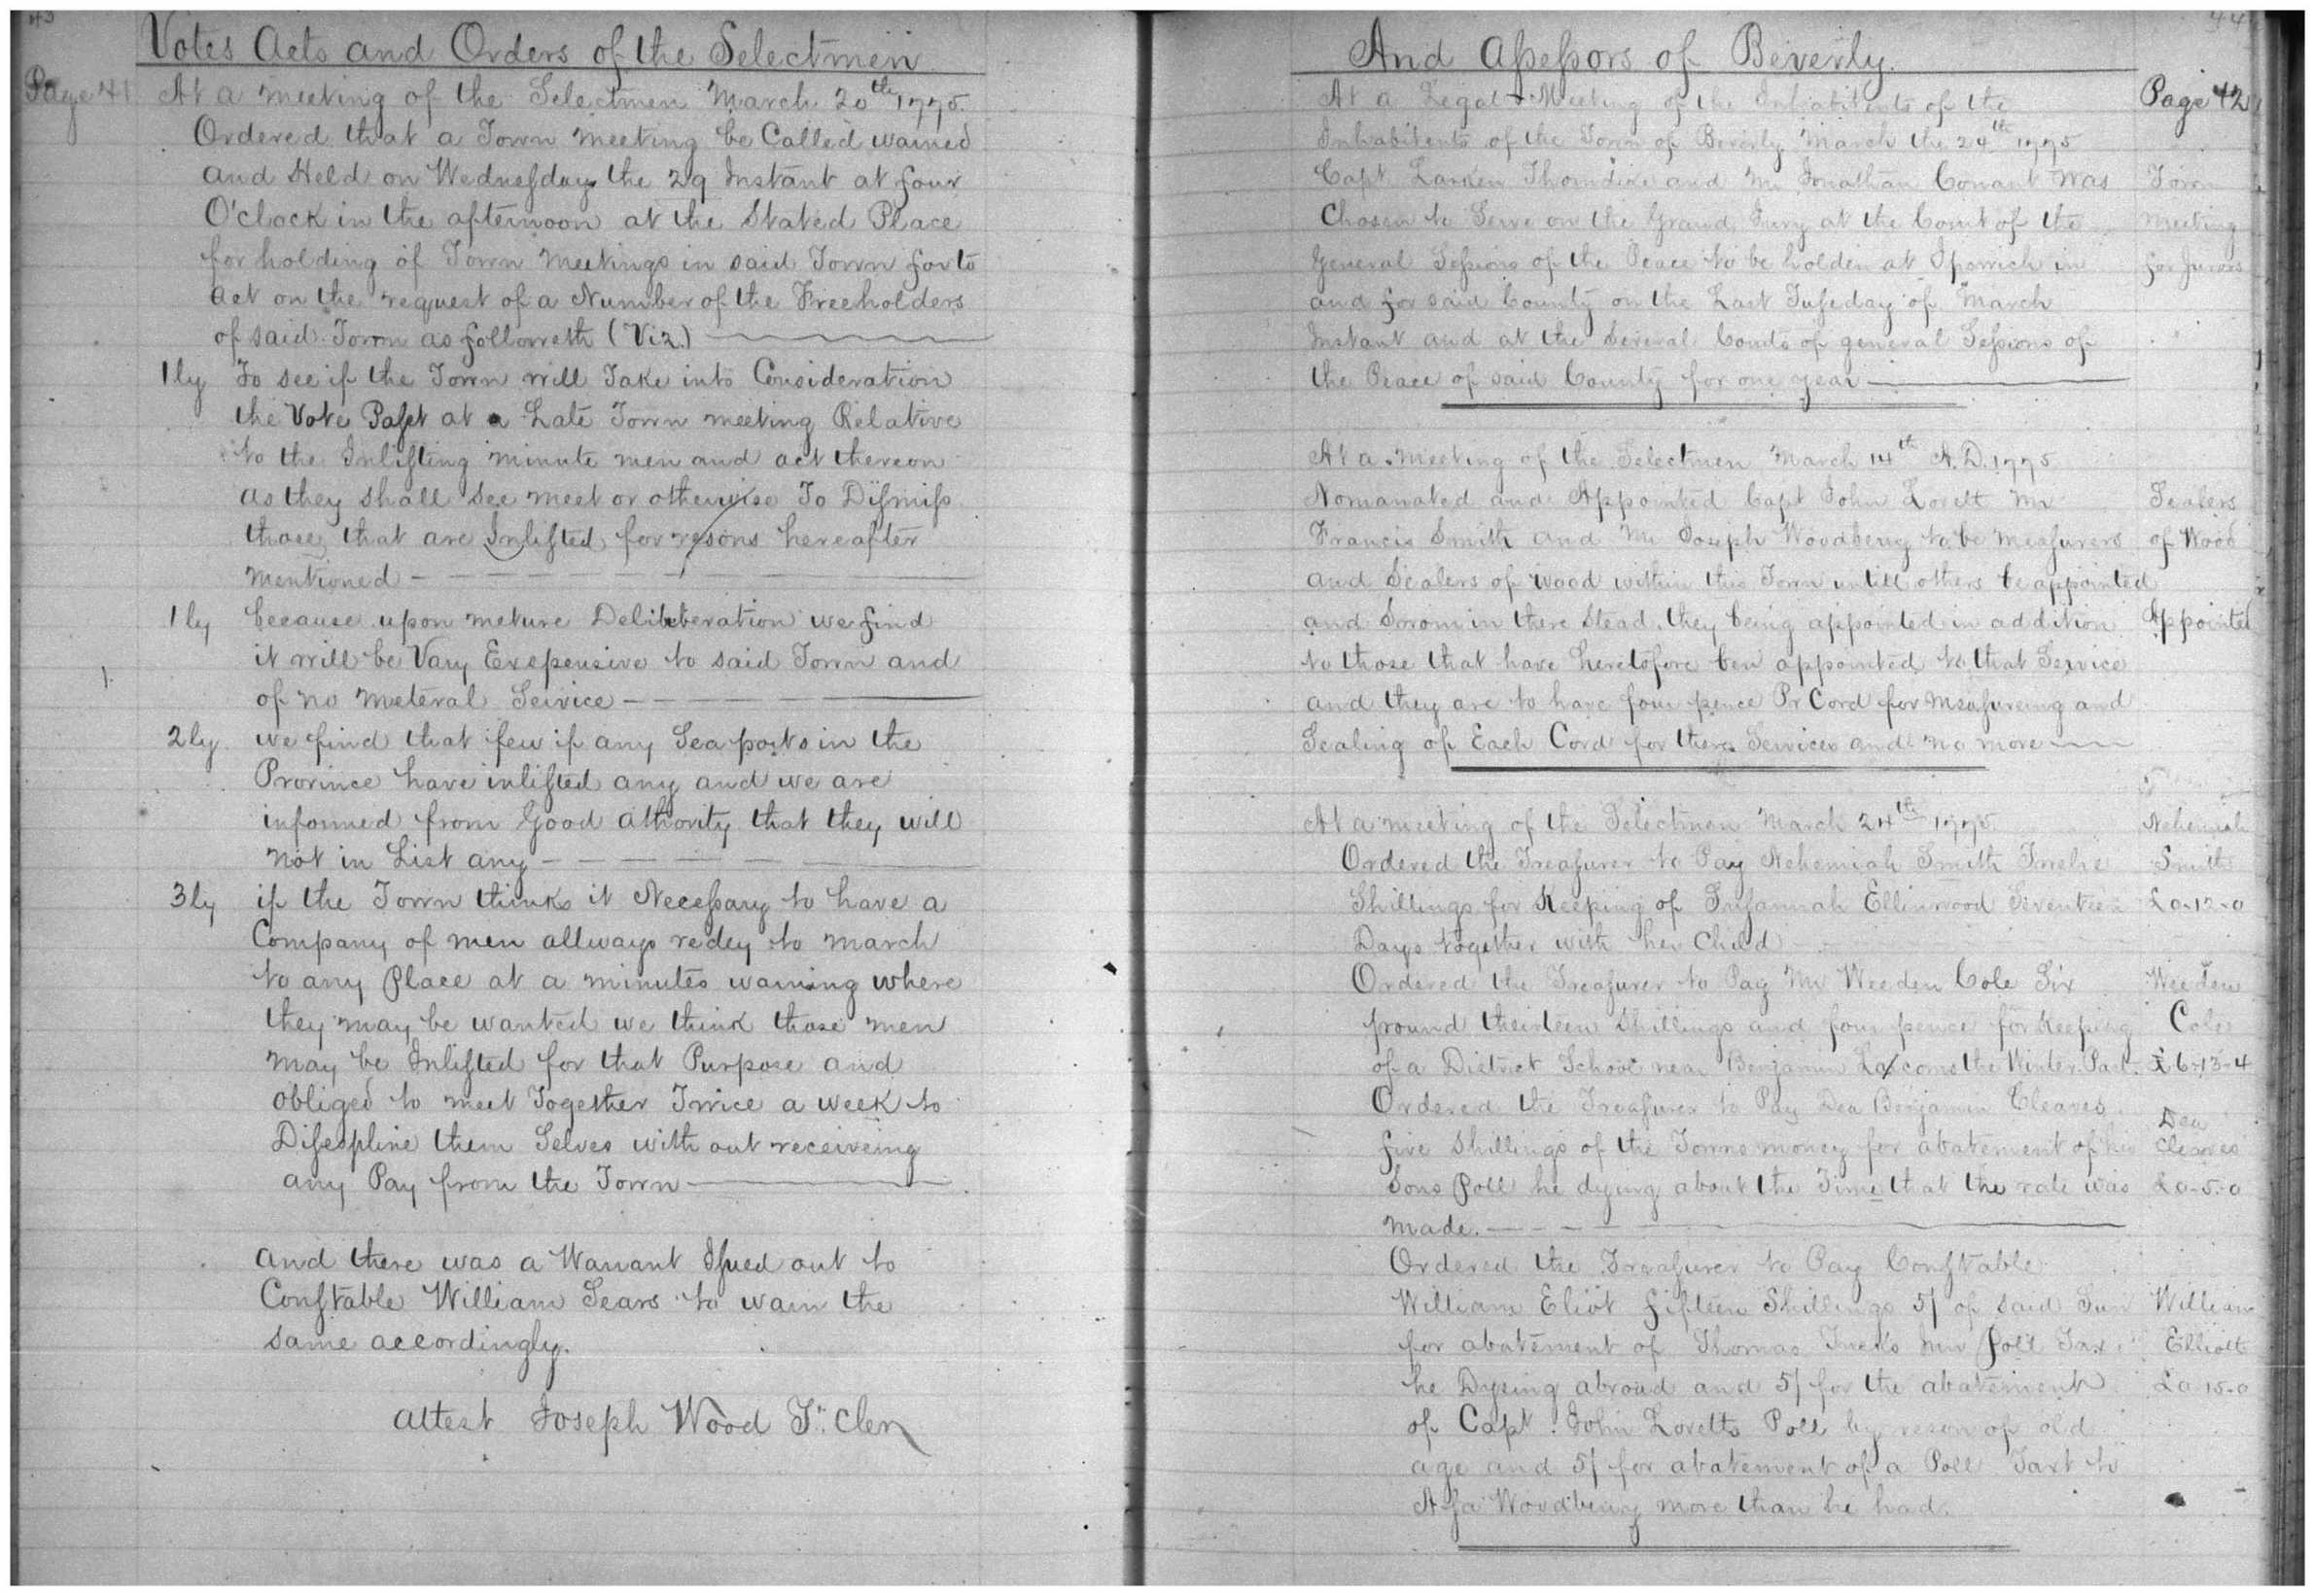 43
Votes Acts and Orders of the Selectmen
Page 41
At a meeting of the Selectmen March 20th 1775.
Ordered that a Town meeting be Called warned
and Held on Wednesday the 29 Instant at four
O'clock in the afternoon at the Stated Place
for holding of Town Meetings in said Town for to
act on the request of a Number of the Freeholders
of said Town as followeth (Viz.)
1ly To see if the Town will Take into Consideration
the Vote Past at a Late Town meeting Relative
to the Inlisting minute men and act thereon
as they shall see meet or otherwise To Dismiss
those that are Inlisted for resons hereafter
mentioned
1ly because upon meture Delibberation we find
it will be Vary Exspensive to said Town and
of no meteral Service
2ly we find that few if any Seaports in the
Province have inlisted any and we are
informed from Good athority that they will
not in List any
3ly if the Town thinks it Necessary to have a
Company of men allways redey to march
to any Place at a minutes warning where
they may be wanted we think those men
may be Inlisted for that Purpose and
obliged to meet Together Twice a week to
Disespline them Selves with out receiveing
any Pay from the Town
and there was a Warrant Isued out to
Constable William Sears to warn the
same accordingly.
attest Joseph Wood T. Cler
44
And Assessors of Beverly.
Page 42
At a Legal Meeting of the Inhabitents of the
Inhabitents of the Town of Beverly March the 24th 1775
Capt Larken Thorndike and Mr Jonathan Conant was
Chosen to Serve on the Grand Jury at the Court of the
General Sessions of the Peace to be holden at Ipswich in
and for said County on the Last Tuseday of March
Instant and at the Several Courts of general Sessions of
the Peace of said County for one year
Town
meeting
for Jurors
At a meeting of the Selectmen March 14th A.D. 1775
Nomanated and Appointed Capt John Lovett Mr
Francis Smith and Mr Joseph Woodbery to be measurers
and Sealers of wood within this Town untill others be appointed
and Sworn in there Stead. they being appointed in addition
to those that have heretofore ben appointed to that Service
and they are to have four pence Pr Cord for measureing and
Sealing of Each Cord for there Services and no more
Sealers
of Wood
Appointed
At a meeting of the Selectmen March 24th 1775
Ordered the Treasurer to Pay Nehemiah Smith Twelve
Shillings for Keeping of Susannah Ellinwood Seventeen
Days together with her Child
Nehemiah
Smith
£0-12-0
Ordered the Treasurer to Pay Mr Weeden Cole Six
pound theirteen Shillings and four pence for keeping
of a District School near Benjamin Laxcoms the Winter Past.
Weeden
Cole
£6-13-4
Ordered the Treasurer to Pay Dea Benjamin Cleaves
five Shillings of the Towns money for abatement of his
Sons Poll he dying about the Time that the rate was
made.
Dea
Cleaves
£0-5-0
Ordered the Treasurer to Pay Constable
William Eliot fifteen Shillings 5/ of said Sum
for abatement of Thomas Tucks Poll Tax
he Dyeing abroad and 5/ for the abatement
of Capt John Lovetts Poll by reson of old
age and 5/ for abatement of a Poll Taxt to
Asa Woodbery more than he had.
William
Elliott
£0-15-0